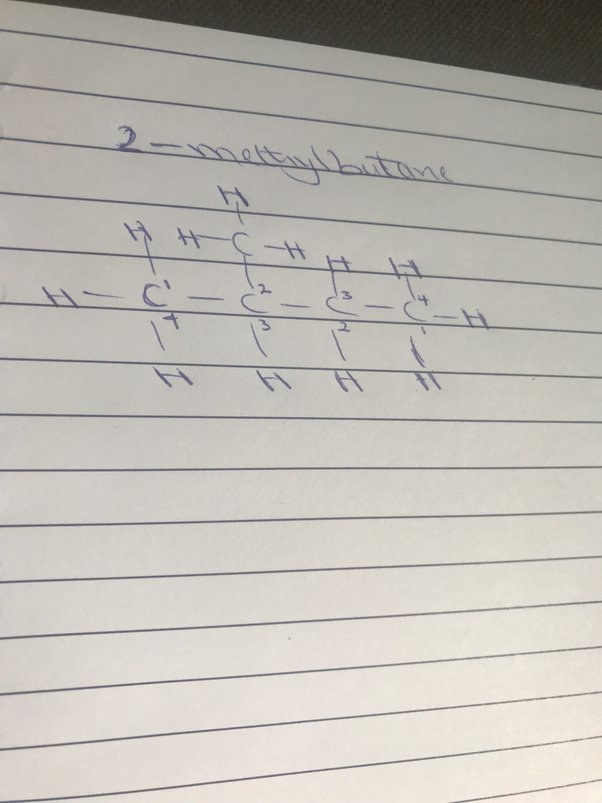 2-methylbutane
H
H H-C-H H H
H-C¹-C²-C³-C⁴-H
4 3 2 1
H H H H